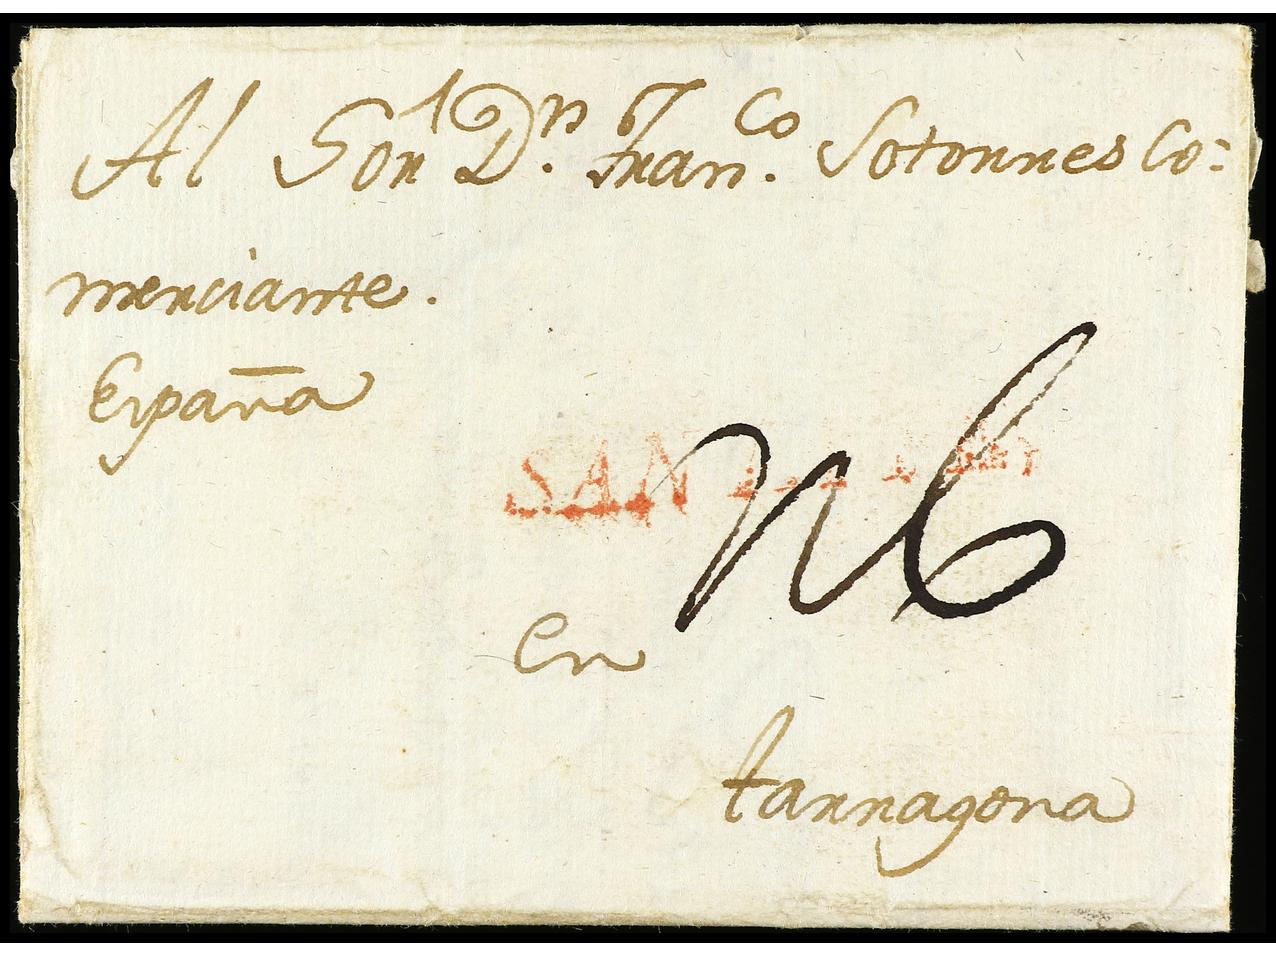 Al Sor. Dn. Franco. Sotorres Co=
merciante.
España
SAN
n6
en
tarragona